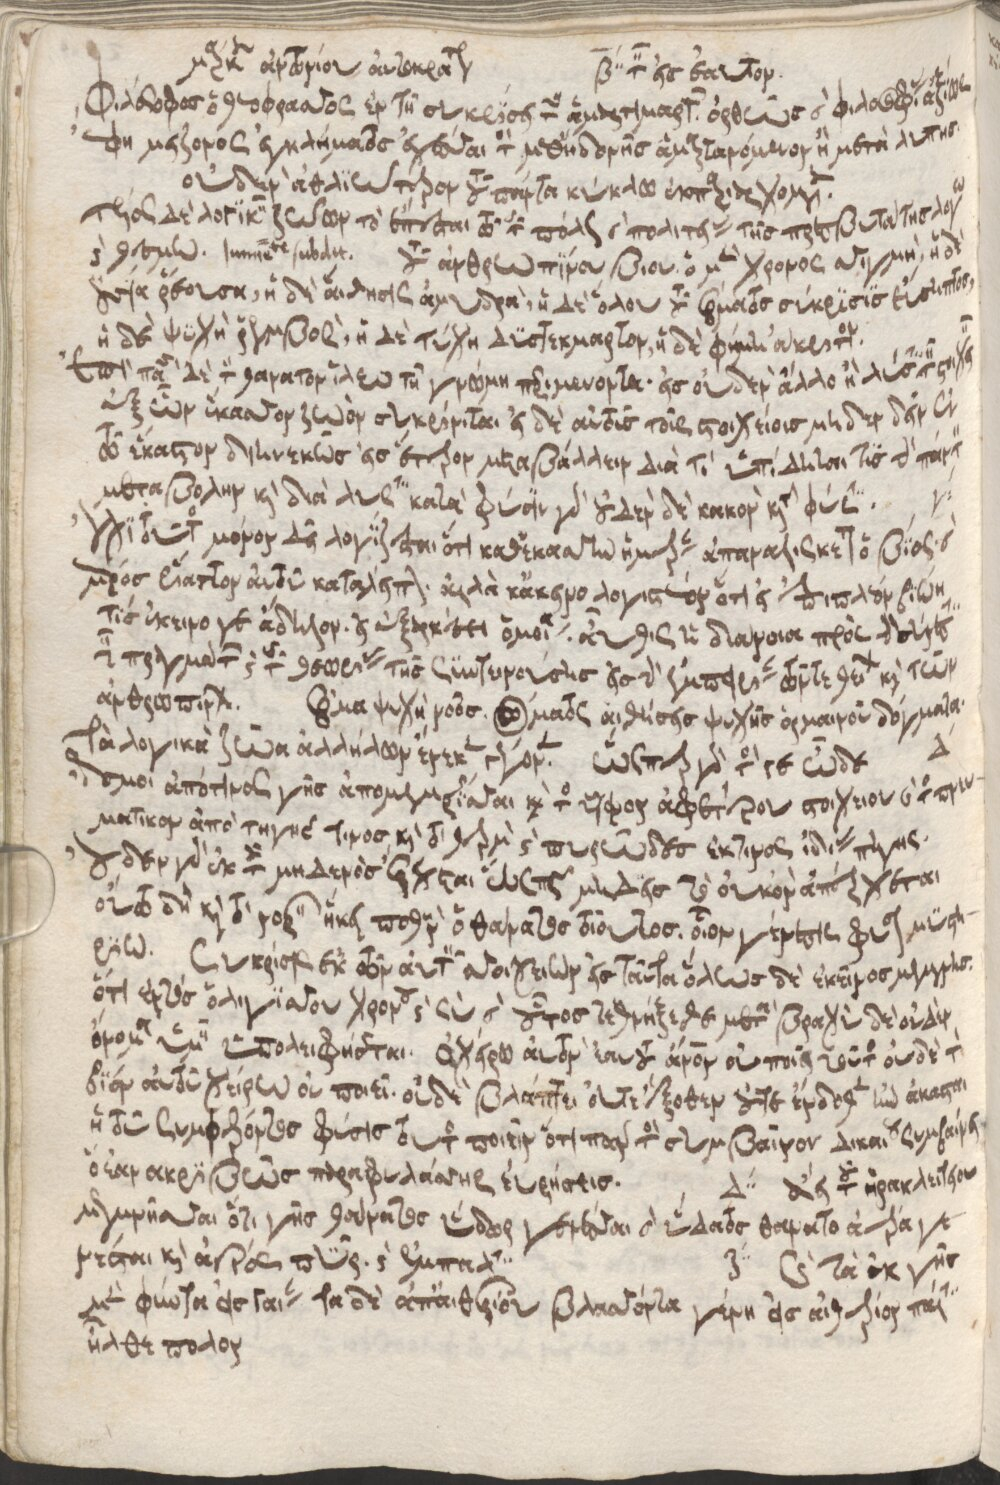 μάρκου ἀντωνίνου αὐτοκράτορος β'' τῶν εἰς ἑαυτόν.
Φιλοσόφως ὁ θεόφραστος ἐν τῇ συγκρίσει τῶν ἁμαρτημάτων. ὀρθῶς καὶ φιλοσοφίας ἀξίως
ἔφη μείζονος ἐγκλήματος ἔχεσθαι τὸ μεθ' ἡδονῆς ἁμαρτανόμενον ἢ μετὰ λύπης.
οὐδὲν ἀθλιώτερον τοῦ πάντα κύκλῳ ἐκπεριερχομένου.
τέλος δὲ λογικῶν ζώων τὸ ἕπεσθαι τῷ τῆς πόλεως καὶ πολιτείας τῆς πρεσβυτάτης λόγῳ
καὶ θεσμῷ. Immediate subdit. τοῦ ἀνθρωπίνου βίου. ὁ μὲν χρόνος στιγμὴ, ἡ δὲ
οὐσία ῥέουσα, ἡ δὲ αἴσθησις ἀμυδρὰ, ἡ δὲ ὅλου τοῦ σώματος σύγκρισις εὔσηπτος,
ἡ δὲ ψυχὴ ῥόμβος, ἡ δὲ τύχη δυστέκμαρτον, ἡ δὲ φήμη ἄκριτον.
ἐπὶ πᾶσι δὲ τὸν θάνατον ἵλεω τῇ γνώμῃ περιμένοντα. ὡς οὐδὲν ἄλλο ἢ λύσιν τῶν στοιχείων
ἐξ ὧν ἕκαστον ζῶον συγκρίνεται. εἰ δὲ αὐτοῖς τοῖς στοιχείοις μηδὲν δεινὸν ἐν
τῷ ἕκαστον διηνεκῶς εἰς ἕτερον μεταβάλλειν διὰ τί ὑπίδηταί τις τὴν πάντων
μεταβολὴν καὶ διάλυσιν κατὰ φύσιν γὰρ οὐδὲν δὲ κακὸν κατὰ φύσιν. γ''
Οὐχὶ τοῦτο μόνον δεῖ λογίζεσθαι ὅτι καθ' ἑκάστην ἡμέραν ἀπαναλίσκεται ὁ βίος καὶ
μέρος ἔλαττον αὐτοῦ καταλείπεται. ἀλλὰ κἀκεῖνο λογιστέον ὅτι εἰ ἐπιπλέον βιῴη
τις ἐκεῖνό γε ἄδηλον. εἰ ἐξαρκέσει ὁμοία αὖθις ἡ διάνοια πρὸς τὴν σύνεσιν
τῶν πραγμάτων καὶ τῆς θεωρίας τῆς συντεινούσης εἰς τὴν ἐμπειρίαν τῶν τε θείων καὶ τῶν
ἀνθρωπίνων. σῶμα ψυχὴ νοῦς. σώματος αἰσθήσεις ψυχῆς ὁρμαὶ νοῦ δόγματα.
Τὰ λογικὰ ζῶα ἀλλήλων ἕνεκεν γέγονεν. ὥσπερ γὰρ τὸ γεῶδε δ'
ς μοι ἀπό τινος γῆς ἀπομεμέρισται καὶ τὸ ὑγρὸν ἀφ' ἑτέρου στοιχείου καὶ τὸ πνευ-
ματικὸν ἀπὸ πηγῆς τινος καὶ τὸ θερμὸν καὶ πυρῶδες ἔκ τινος ἰδίας πηγῆς.
οὐδὲν γὰρ ἐκ τοῦ μηδενὸς ἔρχεται ὥσπερ μηδ' εἰς τὸ οὐκ ὂν ἀπέρχεται
οὕτω δὴ καὶ τὸ νοερὸν ἥκει ποθέν. ὁ θάνατος τοιοῦτος. οἷον γένεσις φύσεως μυστή-
ριον. Σύγκρισις ἐκ τῶν αὐτῶν στοιχείων εἰς ταῦτα ὅλως δὲ ἐκείνου μέμνησο.
ὅτι ἐντὸς ὀλιγίστου χρόνου καὶ σὺ καὶ οὗτος τεθνήξεσθε μετὰ βραχὺ δὲ οὐδὲ
ὄνομα ὑμῶν ὑπολειφθήσεται. ὃ χείρω αὐτὸν ἑαυτοῦ ἄνθρωπον οὐ ποιεῖ τοῦτο οὐδὲ τὸν
βίον αὐτοῦ χείρω οὐ ποιεῖ. οὐδὲ βλάπτει οὔτε ἔξωθεν οὔτε ἔνδοθεν ἠνάγκασται
ἡ τοῦ συμφέροντος φύσις τοῦτο ποιεῖν ὅτι πᾶν τὸ συμβαῖνον δικαίως συμβαίνει
ὃ ἐὰν ἀκριβῶς παραφυλάσσῃς εὑρήσεις. Δ'' ἀεὶ τοῦ ἡρακλειτείου
μεμνῆσθαι ὅτι γῆς θάνατος ὕδωρ γενέσθαι καὶ ὕδατος θάνατος ἀέρα γε
νέσθαι καὶ ἀέρος πῦρ. καὶ ἔμπαλιν ζ'' Καὶ τὰ ἐκ γῆς
μὲν φύντα εἰς γαῖαν τὰ δὲ ἀπ' αἰθερίου βλαστόντα γένη εἰς αἰθέριον πάλιν
ἦλθε πόλον